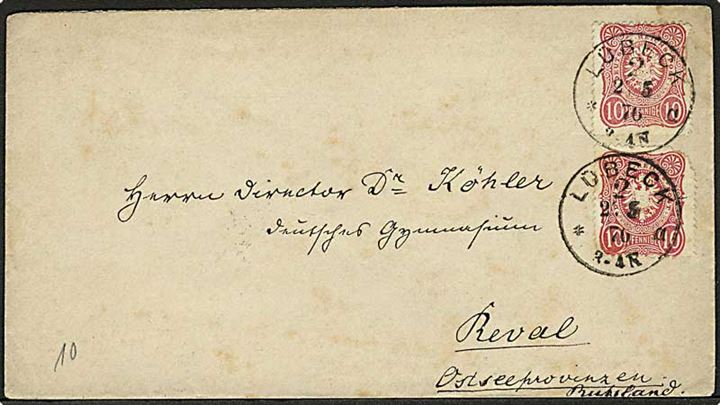 LÜBECK
2
2 5
76 N
3-4N
10 PFENNIGE 10
LÜBECK
2
2 5
76
3-4N
10 PFENNIGE 10
Herrn Director Dr Köhler
deutsches Gymnasium
Reval
Ostseeprovinzen.
Russland.
10